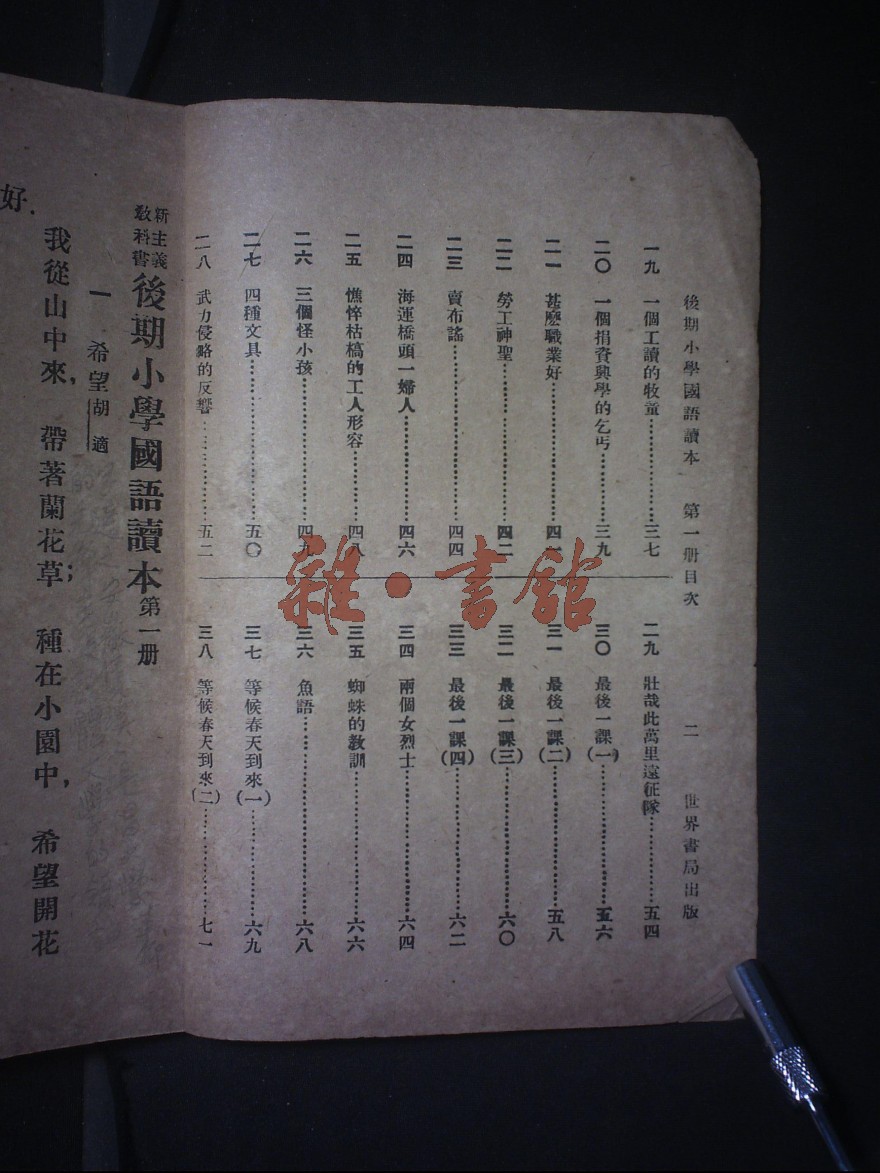 後期小學國語讀本 第一册目次 二 世界書局出版
一九 一個工讀的牧童……三七
二〇 一個捐資興學的乞丐……三九
二一 甚麼職業好……四一
二二 勞工神聖……四二
二三 賣布謠……四四
二四 海運橋頭一婦人……四六
二五 憔悴枯槁的工人形容……四八
二六 三個怪小孩……四九
二七 四種文具……五〇
二八 武力侵略的反響……五二
二九 壯哉此萬里遠征隊……五四
三〇 最後一課(一)……五六
三一 最後一課(二)……五八
三二 最後一課(三)……六〇
三三 最後一課(四)……六二
三四 兩個女烈士……六四
三五 蜘蛛的教訓……六六
三六 魚語……六八
三七 等候春天到來(一)……六九
三八 等候春天到來(二)……七一
雜·書館
新主義
教科書
後期小學國語讀本 第一册
一 希望 胡適
我從山中來, 帶著蘭花草; 種在小園中, 希望開花
好.